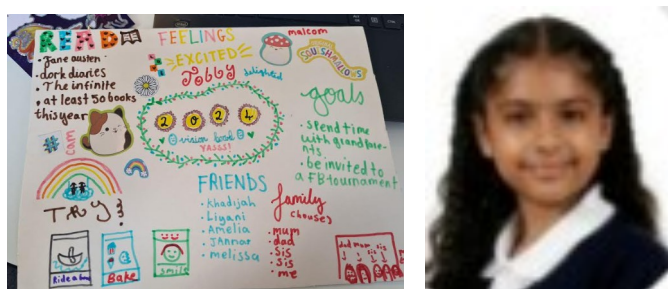 READ
• Jane austen
• dork diaries
• The infinite
• at least 50 books
this year
FEELINGS
EXCITED
Jolly
delighted
malcom
SQUISHMALLOWS
goals
• spend time
with grandpare-
nts
• be invited to
a FB tournament.
2 0 2 4
vision book
YASSS!
# cam
TRY 3
Ride a boat
Bake
smile
FRIENDS
• Khadijah
• Liyani
• Amelia
• JAnnar
• melissa
family
(house)
• mum
• dad
• sis
• sis
• me
dad mum sis sis